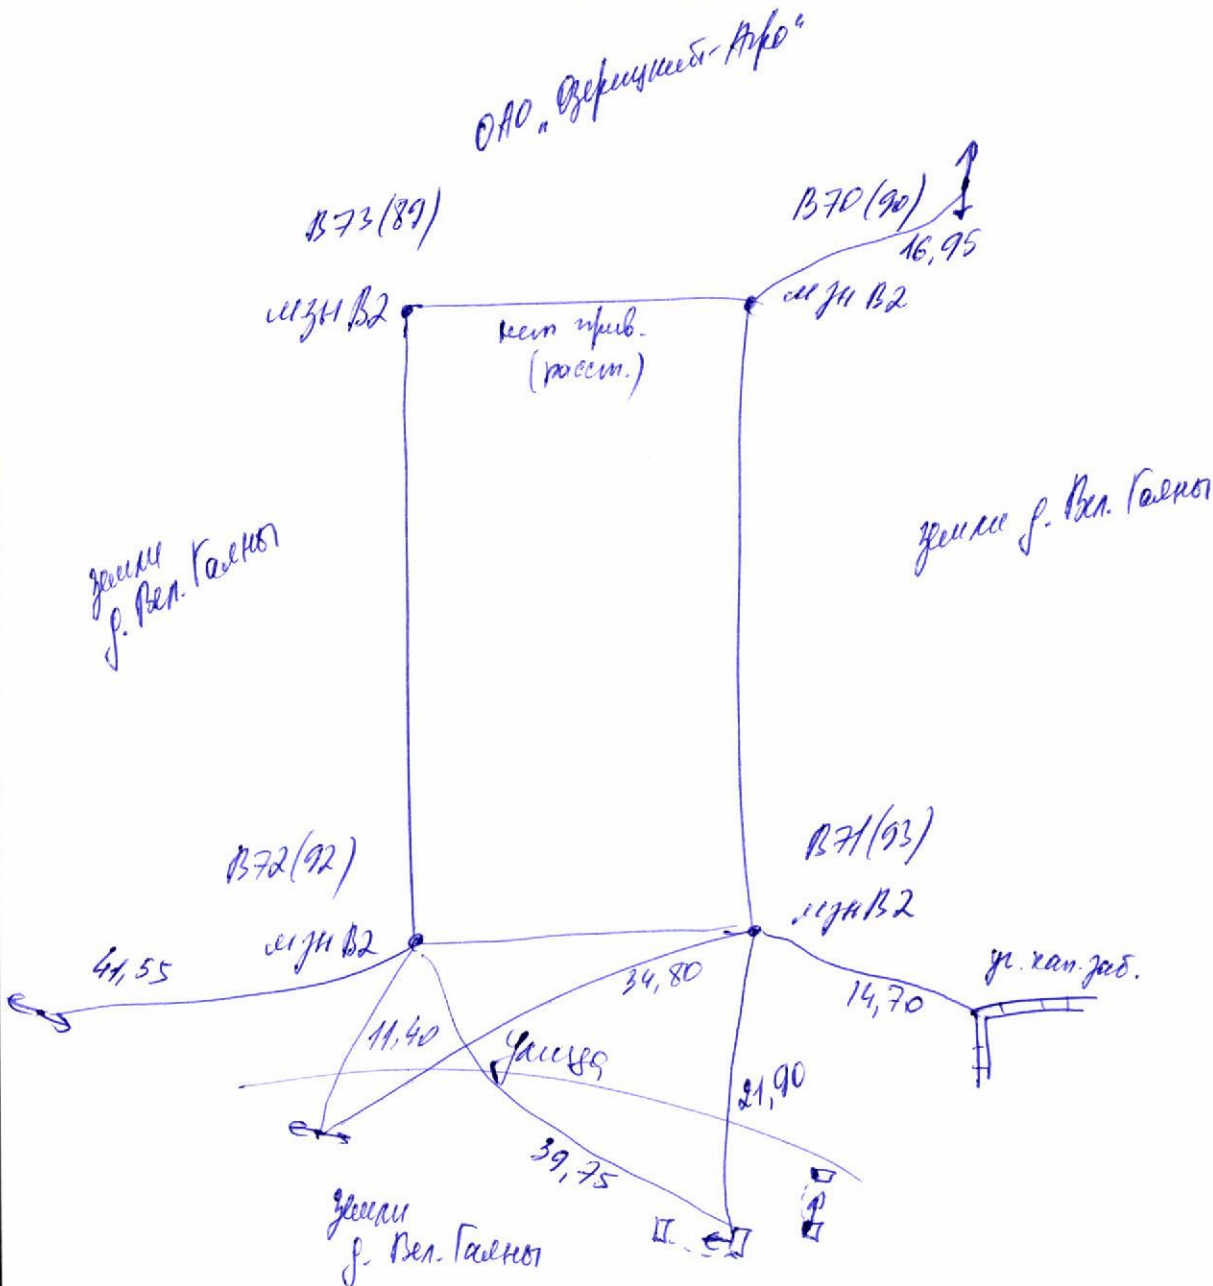 ОАО „Озерицкий-Агро"
В73(89)
В70(90)
16,95
мзн В2
мзн В2
нет прив.
(расст.)
земли
д. Вел. Гаяны
земли д. Вел. Гаяны
В72(92)
В71(93)
мзн В2
мзн В2
41,55
34,80
14,70
уг. кап. заб.
11,40
Улица
21,90
39,75
земли
д. Вел. Гаяны